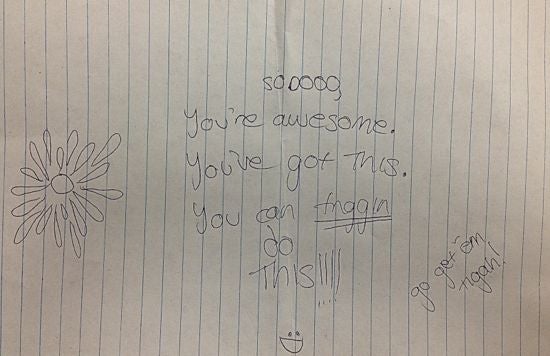 sooooo,
You're awesome.
You've got This.
You can friggin
do
This!!!!
go get 'em
tigah!
:D